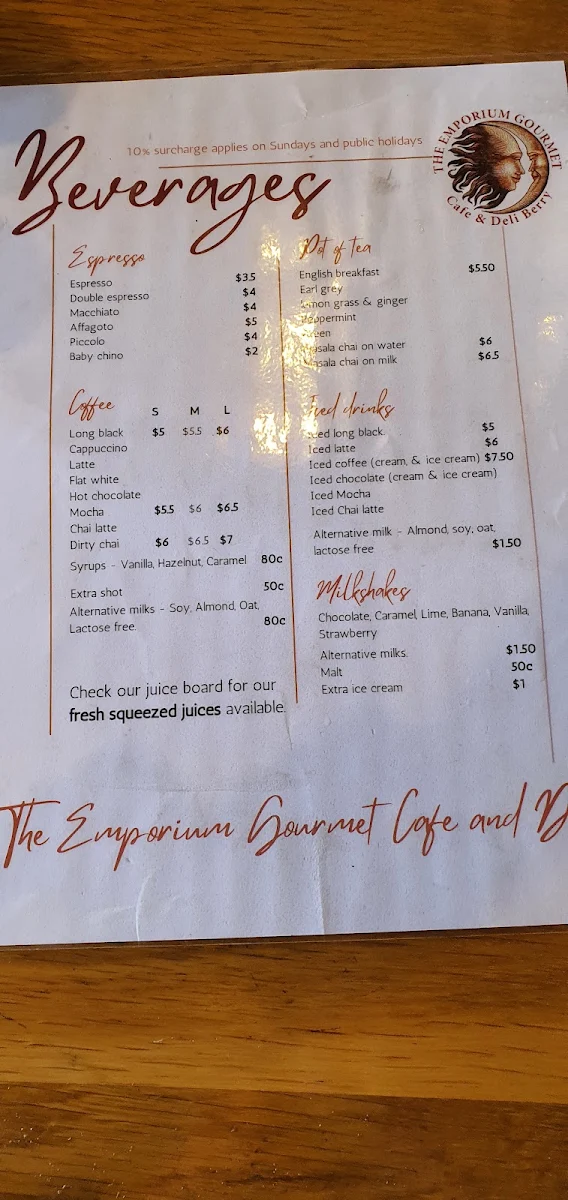 10% surcharge applies on Sundays and public holidays
THE EMPORIUM GOURMET
Cafe & Deli Berry
Beverages
Espresso
Espresso $3.5
Double espresso $4
Macchiato $4
Affagoto $5
Piccolo $4
Baby chino $2
Coffee S M L
Long black $5 $5.5 $6
Cappuccino
Latte
Flat white
Hot chocolate
Mocha $5.5 $6 $6.5
Chai latte
Dirty chai $6 $6.5 $7
Syrups - Vanilla, Hazelnut, Caramel 80c
Extra shot 50c
Alternative milks - Soy, Almond, Oat,
Lactose free. 80c
Check our juice board for our
fresh squeezed juices available.
Pot of tea
English breakfast $5.50
Earl grey
Lemon grass & ginger
Peppermint
Green
Masala chai on water $6
Masala chai on milk $6.5
Iced drinks
Iced long black. $5
Iced latte $6
Iced coffee (cream, & ice cream) $7.50
Iced chocolate (cream & ice cream)
Iced Mocha
Iced Chai latte
Alternative milk - Almond, soy, oat,
lactose free $1.50
Milkshakes
Chocolate, Caramel, Lime, Banana, Vanilla,
Strawberry
Alternative milks. $1.50
Malt 50c
Extra ice cream $1
The Emporium Gourmet Cafe and D